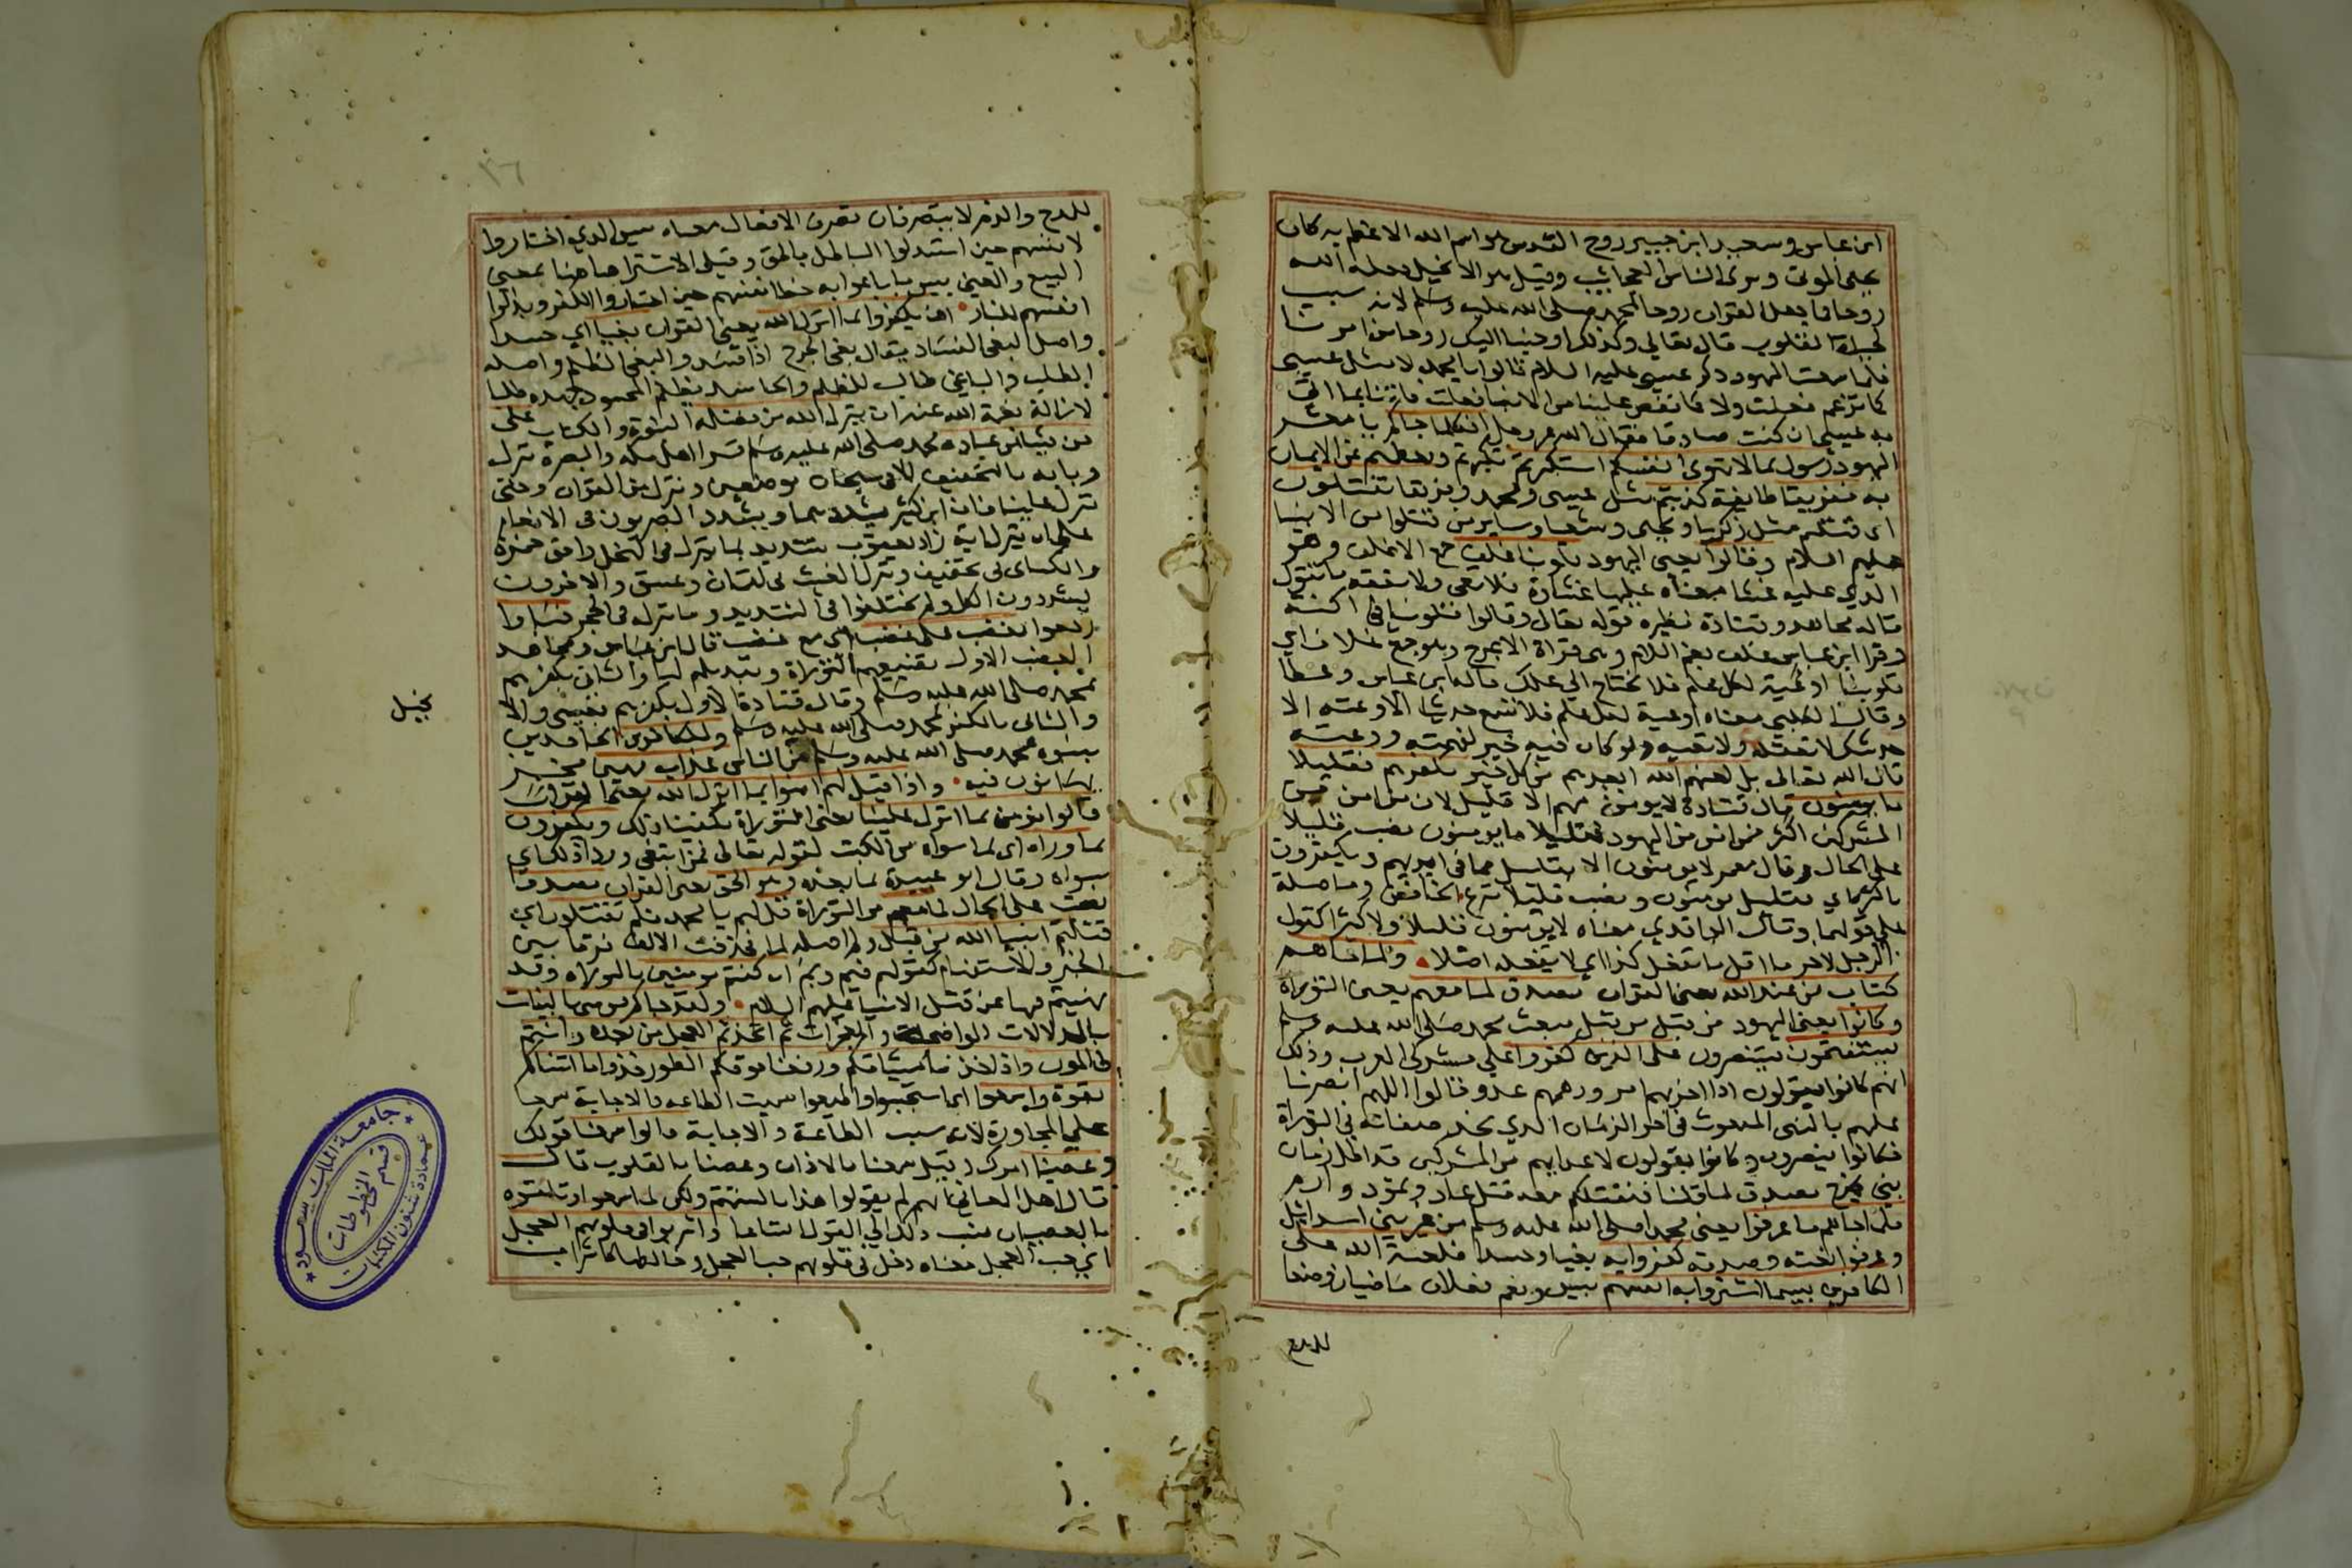 ابن عباس وسعيد ابن جبير روح القدس هو اسم الله الاعظم به كان
يحيى الموتى ويرى الناس العجائب وقيل هو الانجيل جعله الله
روحا كما جعل القران روحا لمحمد صلى الله عليه وسلم لانه سبب
لحياة القلوب قال تعالي وكذلك اوحينا اليك روحا من امرنا
فلما سمعت اليهود ذكر عيسى عليه السلام قالوا يا محمد لا مثل عيسى
كما تزعم فعلت ولا كما تقص علينا من الانبيا فعلت فاتنا بما اتى
به عيسى ان كنت صادقا فقال الله عز وجل افكلما جاكم يا معشر
اليهود رسول بما لا تهوى انفسكم استكبرتم تكبرتم وتعظمتم عن الايمان
به ففريقا طايفة كذبتم مثل عيسى ومحمد وفريقا تقتلون
اى قتلتم مثل زكريا ويحيى وشعيا وساير من قتلوا من الانبيا
عليهم السلام وقالوا يعنى اليهود قلوبنا غلف جمع الاغلف وهو
الذي عليه غشا معناه عليها غشاوة فلا تعى ولا تفقه ما تقول
قاله مجاهد وقتادة نظيره قوله تعالى وقالوا قلوبنا في اكنة
وقرا ابن عباس غلف بضم اللام وهى قراة الاعرج وهو جمع غلاف اي
قلوبنا اوعية لكل علم فلا نحتاج الي علمك قاله ابن عباس وعطا
وقال الكلبي معناه اوعية لكل علم فلا تسمع حديثا الا وعته الا
حديثك لا تعقله ولا تعيه ولو كان فيه خير لفهمته ووعته
قال الله تعالى بل لعنهم الله ابعدهم من كل خير بكفرهم فقليلا
ما يومنون قال قتادة لا يومن منهم الا قليل لان من امن من
المشركين اكثر ممن امن من اليهود فقليلا ما يومنون نصب قليلا
على الحال وقال معمر لا يومنون الا بقليل مما في ايديهم ويكفرون
باكثره اي بقليل يومنون ونصب قليلا بنزع الخافض وما صلة
على قولهما وقال الواقدي معناه لا يومنون قليلا ولا كثيرا كقول
الرجل لاخر ما اقل ما تفعل كذا اي لا يفعله اصلا ولما جاهم
كتاب من عند الله يعنى القران مصدق لما معهم يعنى التوراة
وكانوا يعنى اليهود من قبل من قبل مبعث محمد صلى الله عليه وسلم
يستفتحون يستنصرون على الذين كفروا على مشركى العرب وذلك
انهم كانوا يقولون اذا احزبهم امر ودهمهم عدو قالوا اللهم انصرنا
عليهم بالنبى المبعوث في اخر الزمان الذي نجد صفاته في التوراة
فكانوا ينصرون وكانوا يقولون لاعدايهم من المشركين قد اظل زمان
نبي يخرج بصدق لما قلنا فنقتلكم معه قتل عاد وثمود وارم
فلما جاهم ما عرفوا يعنى محمدا صلى الله عليه وسلم من غير بني اسرائيل
وعرفوا نعته وصفته كفروا به بغيا وحسدا فلعنة الله على
الكافرين بيسما اشتروا به انفسهم بيس ونعم فعلان ماضيان وضعا
للمدح
للمدح والذم لا يتصرفان تصرف الافعال معناه بيس الذي اختاروا
لانفسهم حين استبدلوا الباطل بالحق وقيل الاشترا هاهنا بمعنى
البيع والمعنى بيس ما باعوا به حظ انفسهم حين اختاروا الكفر وبذلوا
انفسهم للنار ان يكفروا بما انزل الله يعنى القران بغيا اي حسدا
واصل البغى الفساد يقال بغى الجرح اذا فسد والبغى الظلم واصله
الطلب والباغي طالب للظلم والحاسد يظلم المحسود جهده طلبا
لازالة نعمة الله عنه ان ينزل الله من فضله النبوة والكتاب على
من يشا من عباده محمد صلى الله عليه وسلم قرا اهل مكة والبصرة ينزل
وبابه بالتخفيف الا فى سبحان موضعين وننزل من القران وحتى
تنزل علينا فان ابن كثير يشددهما ويشدد البصريون فى الانعام
على ان ينزل اية زاد يعقوب تشديد بما ينزل فى النحل وافق حمزة
والكساى فى تخفيف وينزل الغيث فى لقمان وعسق والاخرون
يشددون الكل ولم يختلفوا في تشديد وما ننزله فى الحجر فباوا
رجعوا بغضب على غضب اي مع غضب قال ابن عباس ومجاهد
الغضب الاول بتضييعهم التوراة وتبديلهم لها والثانى بكفرهم
بمحمد صلى الله عليه وسلم وقال قتادة الاول بكفرهم بعيسى والا
نجيل
والثانى بالكفر بمحمد صلى الله عليه وسلم وللكافرين الجاحدين
بنبوة محمد صلى الله عليه وسلم من الناس عذاب مهين مخز
يهانون فيه واذا قيل لهم امنوا بما انزل الله يعنى القران
قالوا نومن بما انزل علينا يعنى التوراة يكفينا ذلك ويكفرون
بما وراه اى بما سواه من الكتب لقوله تعالى فمن ابتغى ورا ذلك اي
سواه وقال ابو عبيدة بما بعده وهو الحق يعنى القران مصدقا
نصب على الحال لما معهم من التوراة قل لهم يا محمد فلم تقتلون اي
قتلتم انبيا الله من قبل ولم اصله لما فحذفت الالف فرقا بين
الخبر والاستفهام كقولهم فيم وبم ان كنتم مومنين بالتوراة وقد
نهيتم فيها عن قتل الانبيا عليهم السلام ولقد جاكم موسى بالبينات
بالدلالات الواضحة والمعجزات ثم اتخذتم العجل من بعده وانتم
ظالمون واذ اخذنا ميثاقكم ورفعنا فوقكم الطور خذوا ما اتيناكم
بقوة واسمعوا اى استجيبوا واطيعوا سميت الطاعة والاجابة سمعا
على المجاورة لانه سبب الطاعة والاجابة قالوا سمعنا قولك
وعصينا امرك وقيل سمعنا بالاذان وعصينا بالقلوب قال
قال اهل المعاني انهم لم يقولوا هذا بالسنتهم ولكن لما سمعوا وتلقوه
بالعصيان نسب ذلك الي القول اتساعا واشربوا فى قلوبهم العجل
اي حب العجل معناه دخل في قلوبهم حب العجل وخالطها كاشراب
جامعة الملك سعود
قسم المخطوطات
عمادة شئون المكتبات